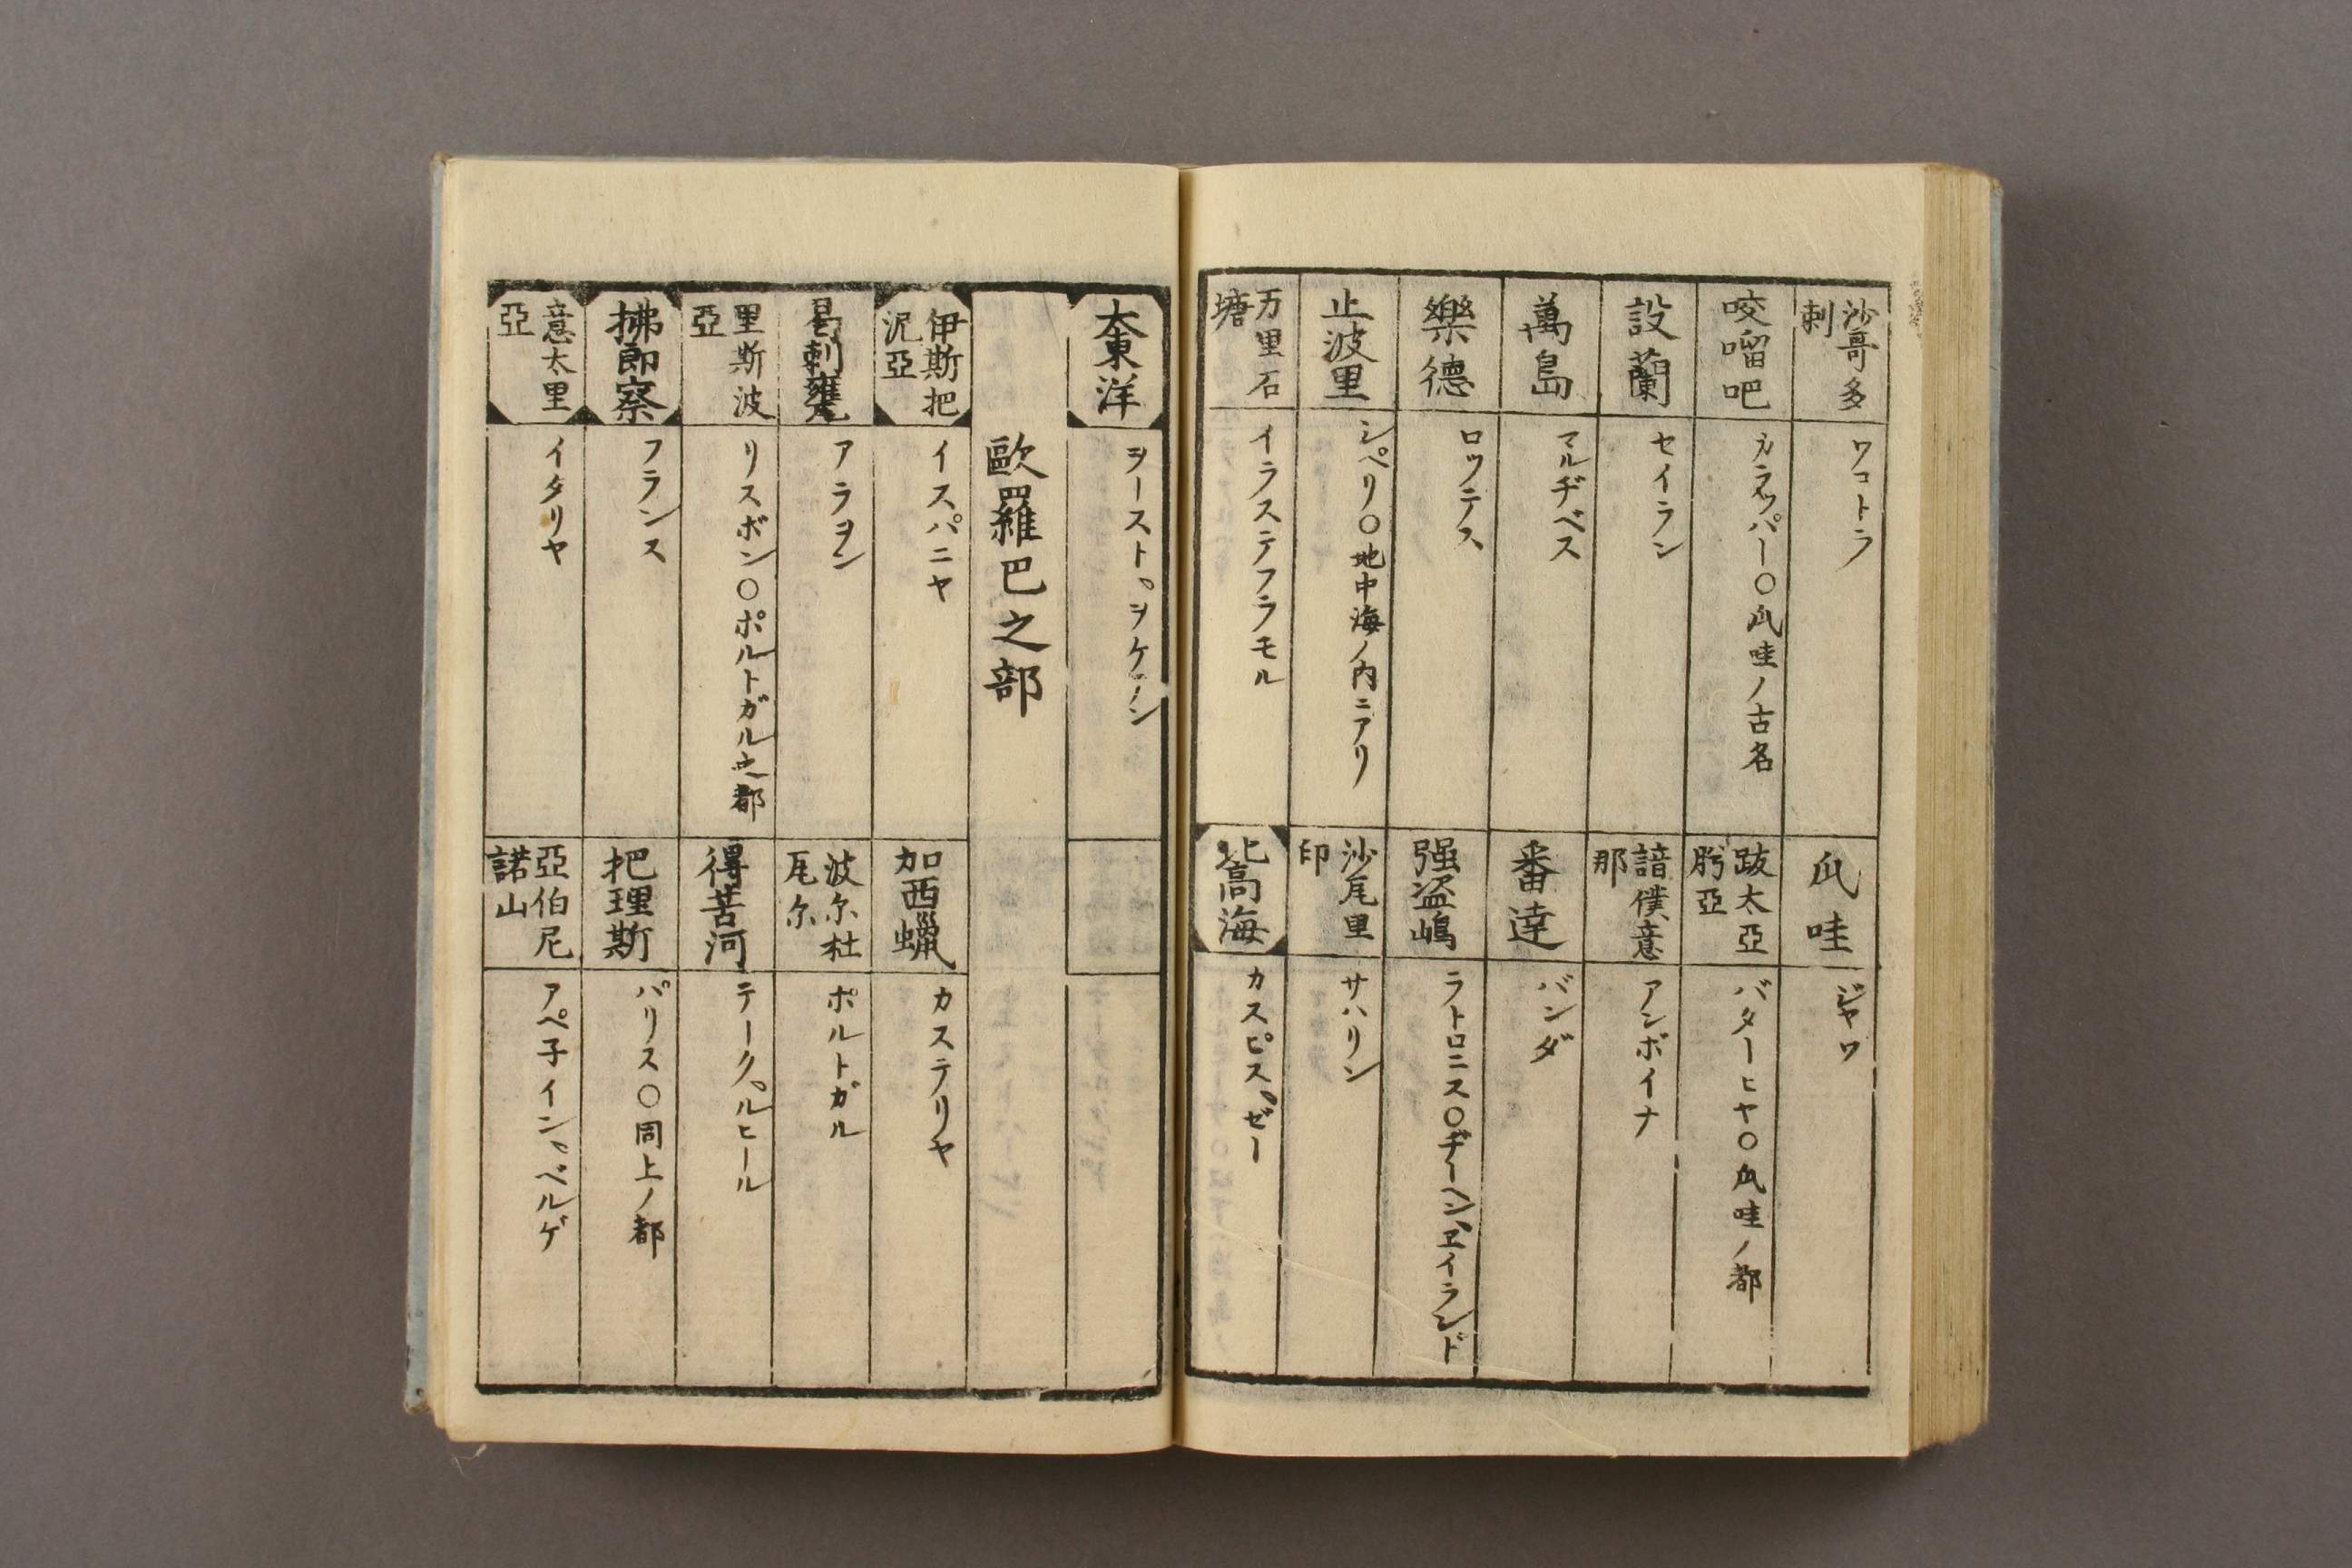 沙哥多剌
ワコトラ
爪哇
ジヤワ
咬𠺕吧
カラッパー〇爪哇ノ古名
跋太亞
亞
バターヒヤ〇爪哇ノ都
設蘭
セイラン
諳僕意那
アンボイナ
萬島
マルヂベス
番達
バンダ
樂德
ロッテス
强盗嶋
ラトロニス〇ヂーヘン、ヱイランド
止波里
シペリ〇地中海ノ内ニアリ
沙尾里印
サハリン
万里石塘
イラステフラモル
北高海
カスピス、ゼー
大東洋
ヲースト、ヲケアン
歐羅巴之部
伊斯把泥亞
イスパニヤ
加西蠟
カステリヤ
アラヲン
波尓杜瓦尓
ポルトガル
里斯波亞
リスボン〇ポルトガル之都
得若河
テーク、ルヒール
拂郎察
フランス
把理斯
パリス〇同上ノ都
意太里亞
イタリヤ
亞伯尼諾山
アペ子イン、ベルゲ